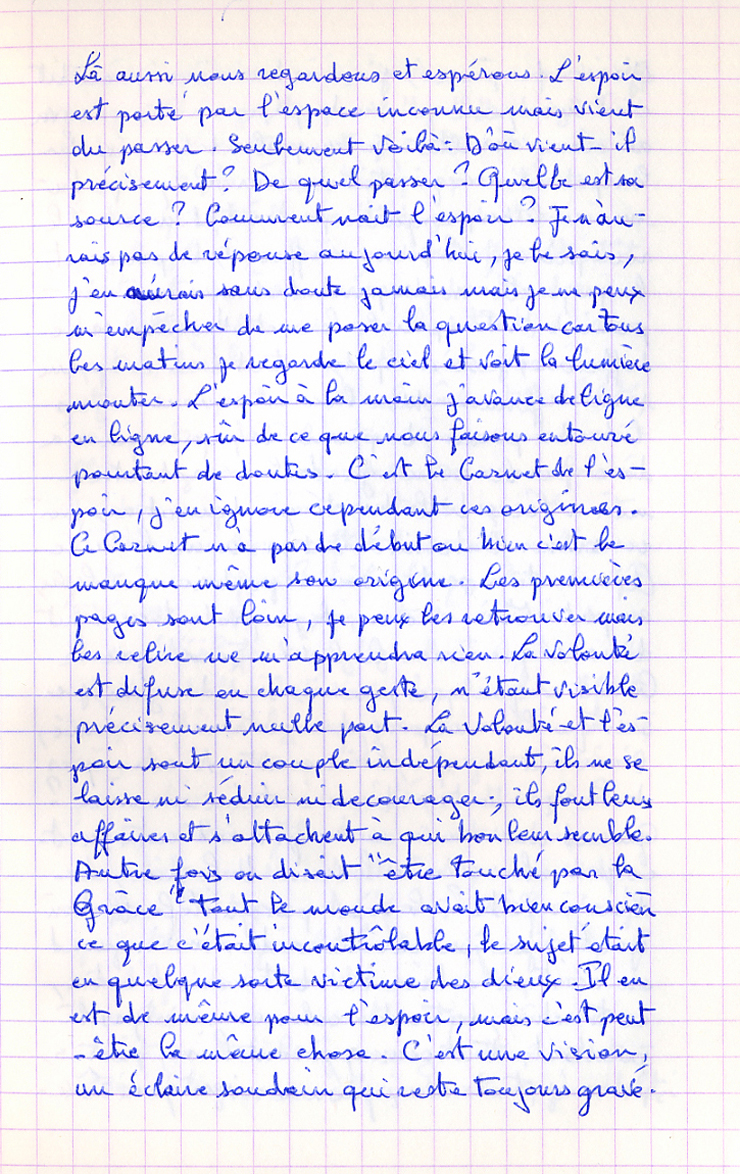 Là aussi nous regardons et espérons. L'espoir
est porté par l'espace inconnu mais vient
du passer. Seulement voilà: D'où vient-il
précisement? De quel passer? Quelle est sa
source? Comment nait l'espoir? Je n'au-
rais pas de réponse aujourd'hui, je le sais,
j'en aurais sans doute jamais mais je ne peux
m'empêcher de me poser la question car tous
les matins je regarde le ciel et voit la lumière
monter. L'espoir à la main j'avance de ligne
en ligne, sûr de ce que nous faisons entouré
pourtant de doutes. C'est le Carnet de l'es-
poir, j'en ignore cependant ces origines.
Ce Carnet n'a pas de début ou bien c'est le
manque même son origine. Les premières
pages sont loin, je peux les retrouver mais
les relire ne m'apprendra rien. La volonté
est difuse en chaque geste, n'étant visible
précisement nulle part. La volonté et l'es-
poir sont un couple indépendant, ils ne se
laisse ni séduir ni decourager, ils font leurs
affaires et s'attachent à qui bon leur semble.
Autre fois on disait "être touché par la
Grâce" tout le monde avait bien conscien
ce que c'était incontrôlable, le sujet était
en quelque sorte victime des dieux. Il en
est de même pour l'espoir, mais c'est peut
-être la même chose. C'est une vision,
un éclaire soudain qui reste toujours gravé.